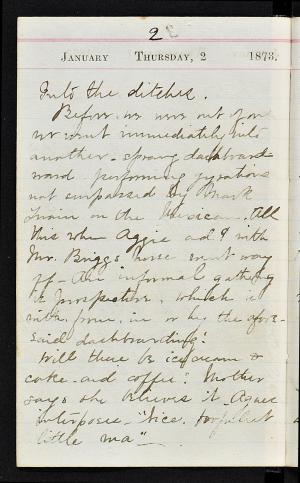 2
January Thursday, 2 1873.
Into the ditches.
Before we were out of one
we went immediately into
another - sprang dashboard-
ward performing gyrations
not surpassed by Mark
Twain on the Mexican. All
this when Aggie and I with
Mr. Briggs horse went way
off - An informal gathering
in prospective, which is
with, in or by the afore-
said dashboarding!
Will there be icecream &
cake - and coffee? Mother
says she believes it. Agnes
interposes - "Nice,
little ma" -